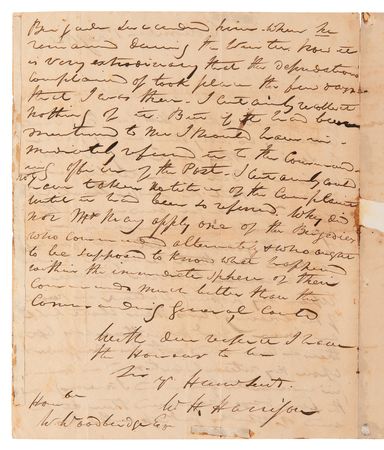 Brigade succeeded him when he
remained during the Winter. Now it
is very extraordinary that the depredations
complained of took place the few days
that I was there. I certainly recollect
nothing of it. But if it had been
mentioned to me I should have im-
mediately referred it to the Command-
ing officer of the Post. I certainly could
not have taken notice of the Complaint
until it had been so referred. Why did
not Mr May apply one of the Brigadiers
who commanded alternately & who ought
to be supposed to know what happened
within the immediate sphere of their
Commands much better than the
Commanding General could
with due respect I have
the Honour to be
Sir yr Humb Servt.
W. H. Harrison
Honble
W Woodbridge Esqr